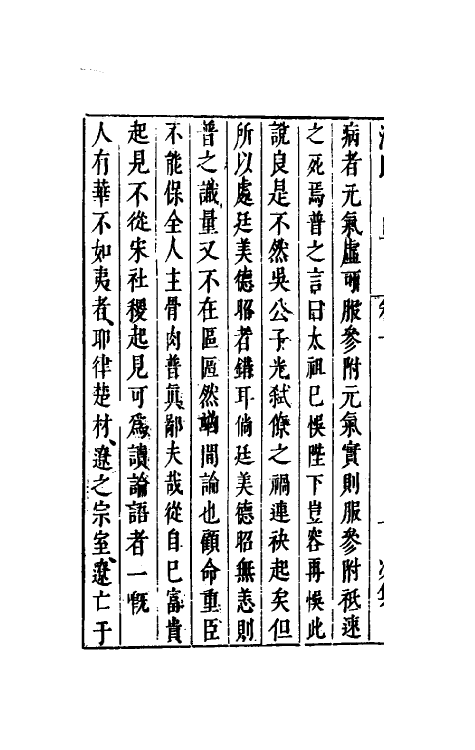 病者元氣虛可服參附元氣實則服參附祇速
之死焉普之言曰太祖已悞陛下豈容再悞此
說良是不然吳公子光弒僚之禍連袂起矣但
所以處廷美德昭者錯耳倘廷美德昭無恙則
普之識量又不在區區然猶間論也顧命重臣
不能保全人主骨肉普眞鄙夫哉從自己富貴
起見不從宋社稷起見可爲讀論語者一慨
人有華不如夷者耶律楚材遼之宗室遼亡于